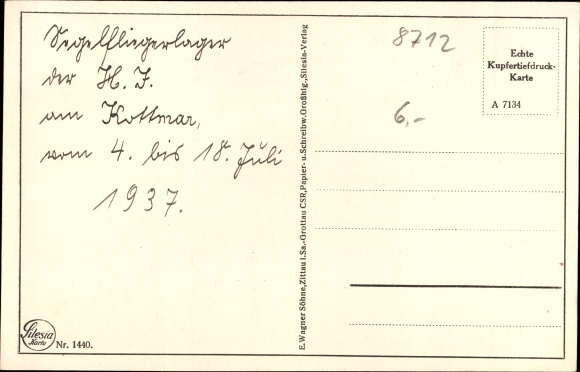 Segelfliegerlager
der H. J.
am Kottmar,
vom 4. bis 18. Juli
1937.
8712
6,-
Echte
Kupfertiefdruck-
Karte
A 7134
E. Wagner Söhne, Zittau i. Sa.-Grottau CSR, Papier- u. Schreibw. Großhlg., Silesia-Verlag
Silesia
Karte
Nr. 1440.